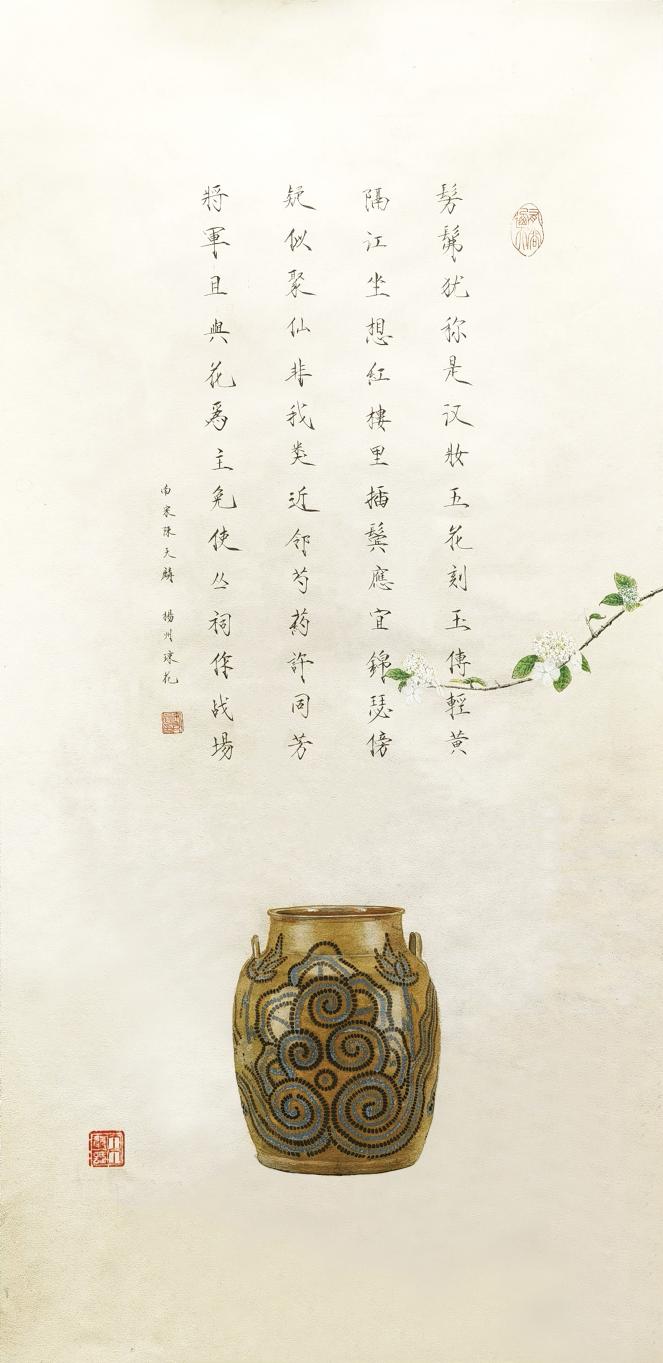 髣髴犹称是汉妝五花刻玉傳輕黄
隔江坐想紅樓里插鬢應宜錦瑟傍
疑似聚仙非我类近邻芍药許同芳
將軍且與花爲主免使丛祠作战場
南宋陳天麟 揚州琼花